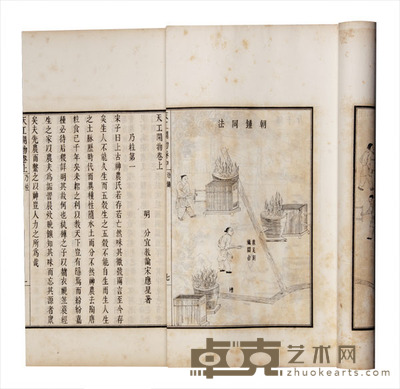 朝鍾同法
天工開物卷上
明 分宜教諭宋應星著
乃粒第一
宋子曰上古神農氏若存若亡然味其徽號兩言至今存
矣生人不能久生而五穀生之五穀不能自生而生人生
之土脈歷時代而異種性隨水土而分不然神農去陶唐
粒食已千年矣耒耜之利以教天下豈有隱焉而紛紛嘉
種必待后稷詳明其故何也紈褲之子以赭衣視笠蓑經
生之家以農夫為詬詈晨炊晚饟知其味而忘其源者眾
矣夫先農而繫之以神豈人力之所為哉
天工開物卷上 乃粒 一
卓克艺术网
zhuokearts.com